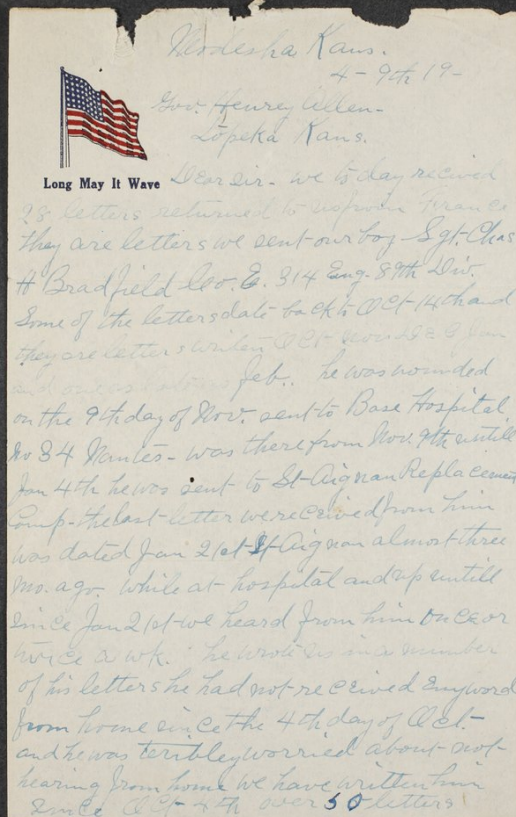 Neodesha Kans.
4-9th 19-
Gov Henrey Allen-
Topeka Kans.
Long May It Wave
Dear sir- we to day recived
28 letters returned to us from France
they are letters we sent our boy Sgt. Chas
H Bradfield Co. E. 314 Eng. 89th Div.
Some of the letters date back to Oct 14th and
they are letters writen Oct Nov Dec Jan
and Feb.. he was wounded
on the 9th day of Nov. sent to Base Hospital
No 34 Nantes- was there from Nov. 9th untill
Jan 4th he was sent to St-Aignan Replacement
Camp- the last letter we received from him
was dated Jan 21st St-Aignan almost three
mo. ago. while at hospital and up untill
since Jan 21st we heard from him once or
twice a wk. he wrote us in a number
of his letters he had not received any word
from home since the 4th day of Oct.
and he was terribley worried about not
hearing from home we have written him
since Oct 4th over 50 letters